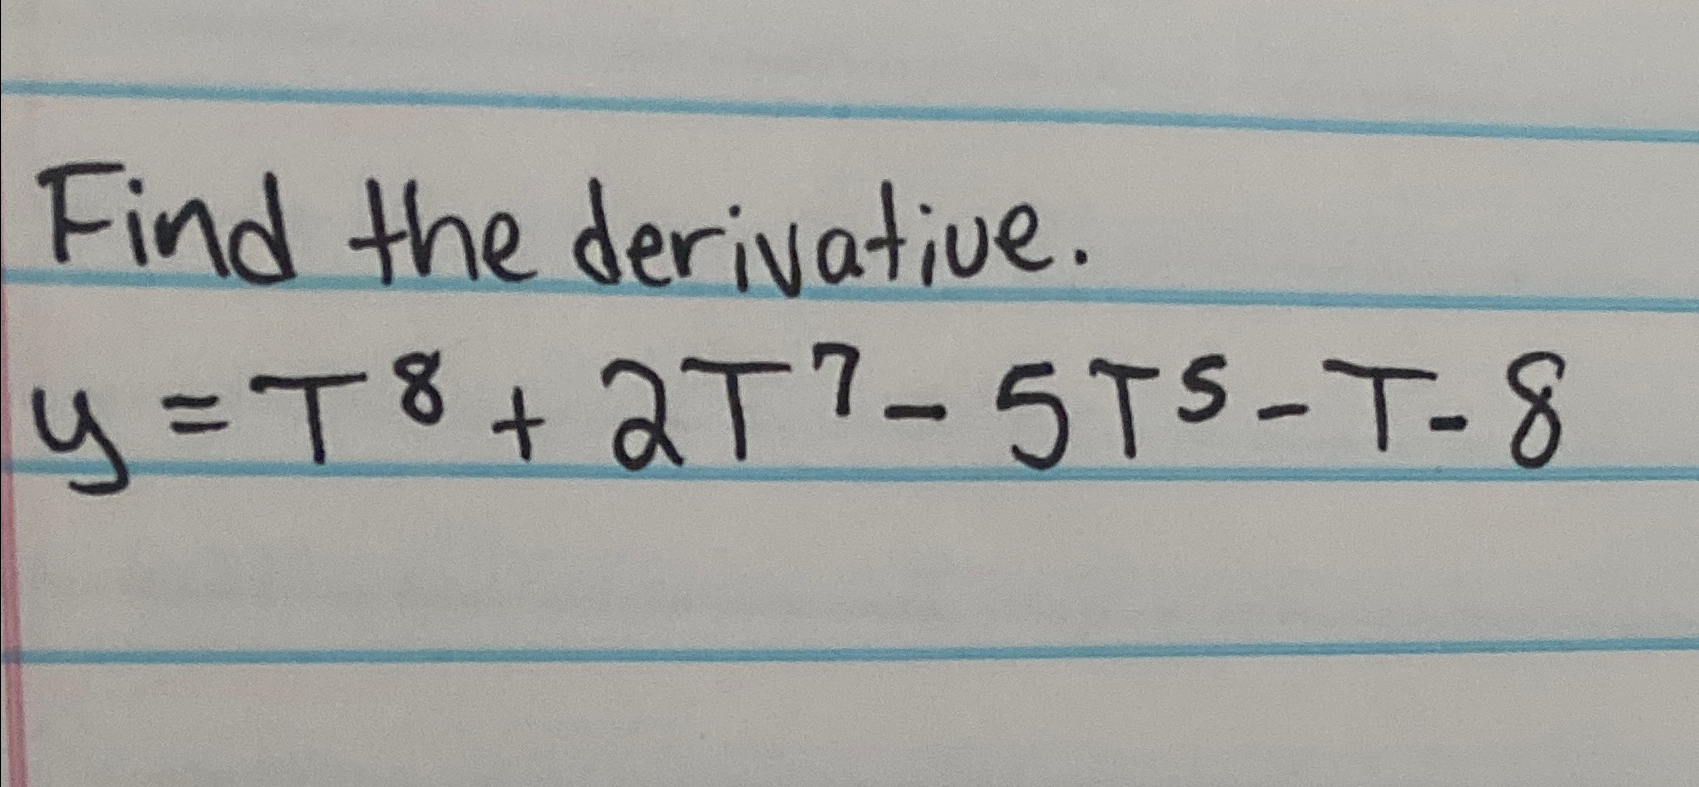 Find the derivative.
y = T⁸ + 2T⁷ - 5T⁵ - T - 8